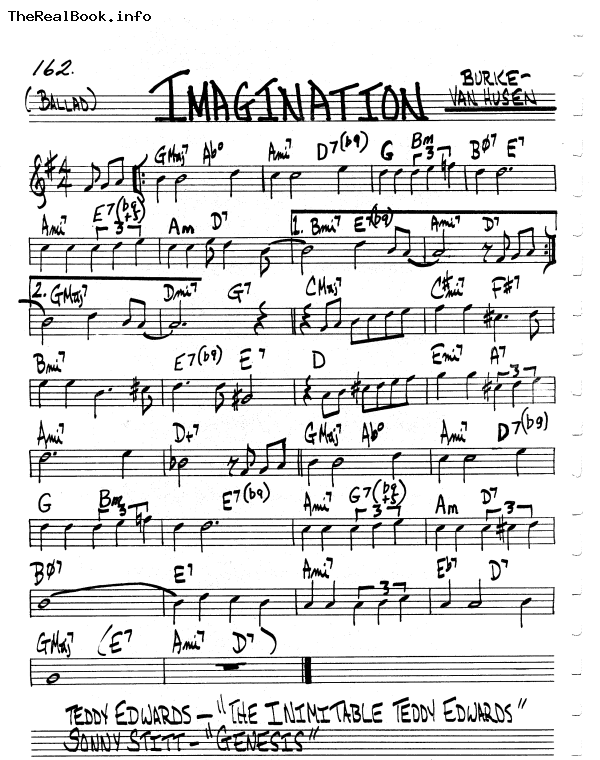 TheRealBook.info
162.
(BALLAD)
IMAGINATION
BURKE-
VAN HUSEN
GMaj7 Ab° Ami7 D7(b9) G Bm BØ7 E7
3
Ami7 E7(b9+5) Am D7 1. Bmi7 E7(b9) Ami7 D7
3
2. GMaj7 Dmi7 G7 CMaj7 C#mi7 F#7
Bmi7 E7(b9) E7 D Emi7 A7
3
Ami7 D+7 GMaj7 Ab° Ami7 D7(b9)
G Bm E7(b9) Ami7 G7(b9+5) Am D7
3 3 3
BØ7 E7 Ami7 Eb7 D7
3
GMaj7 (E7 Ami7 D7)
TEDDY EDWARDS – "THE INIMITABLE TEDDY EDWARDS"
SONNY STITT – "GENESIS"